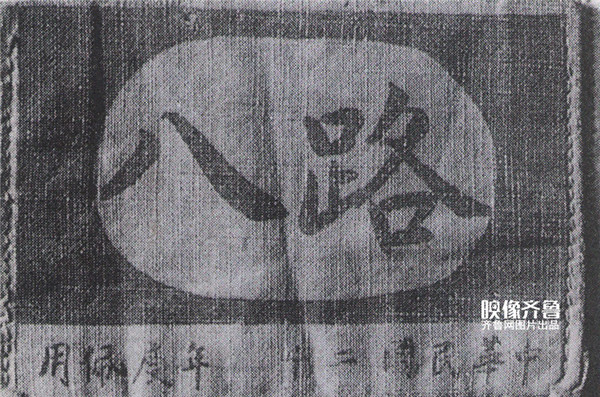 八路
中華民國二十 年度佩用
映像齐鲁
齐鲁网图片出品